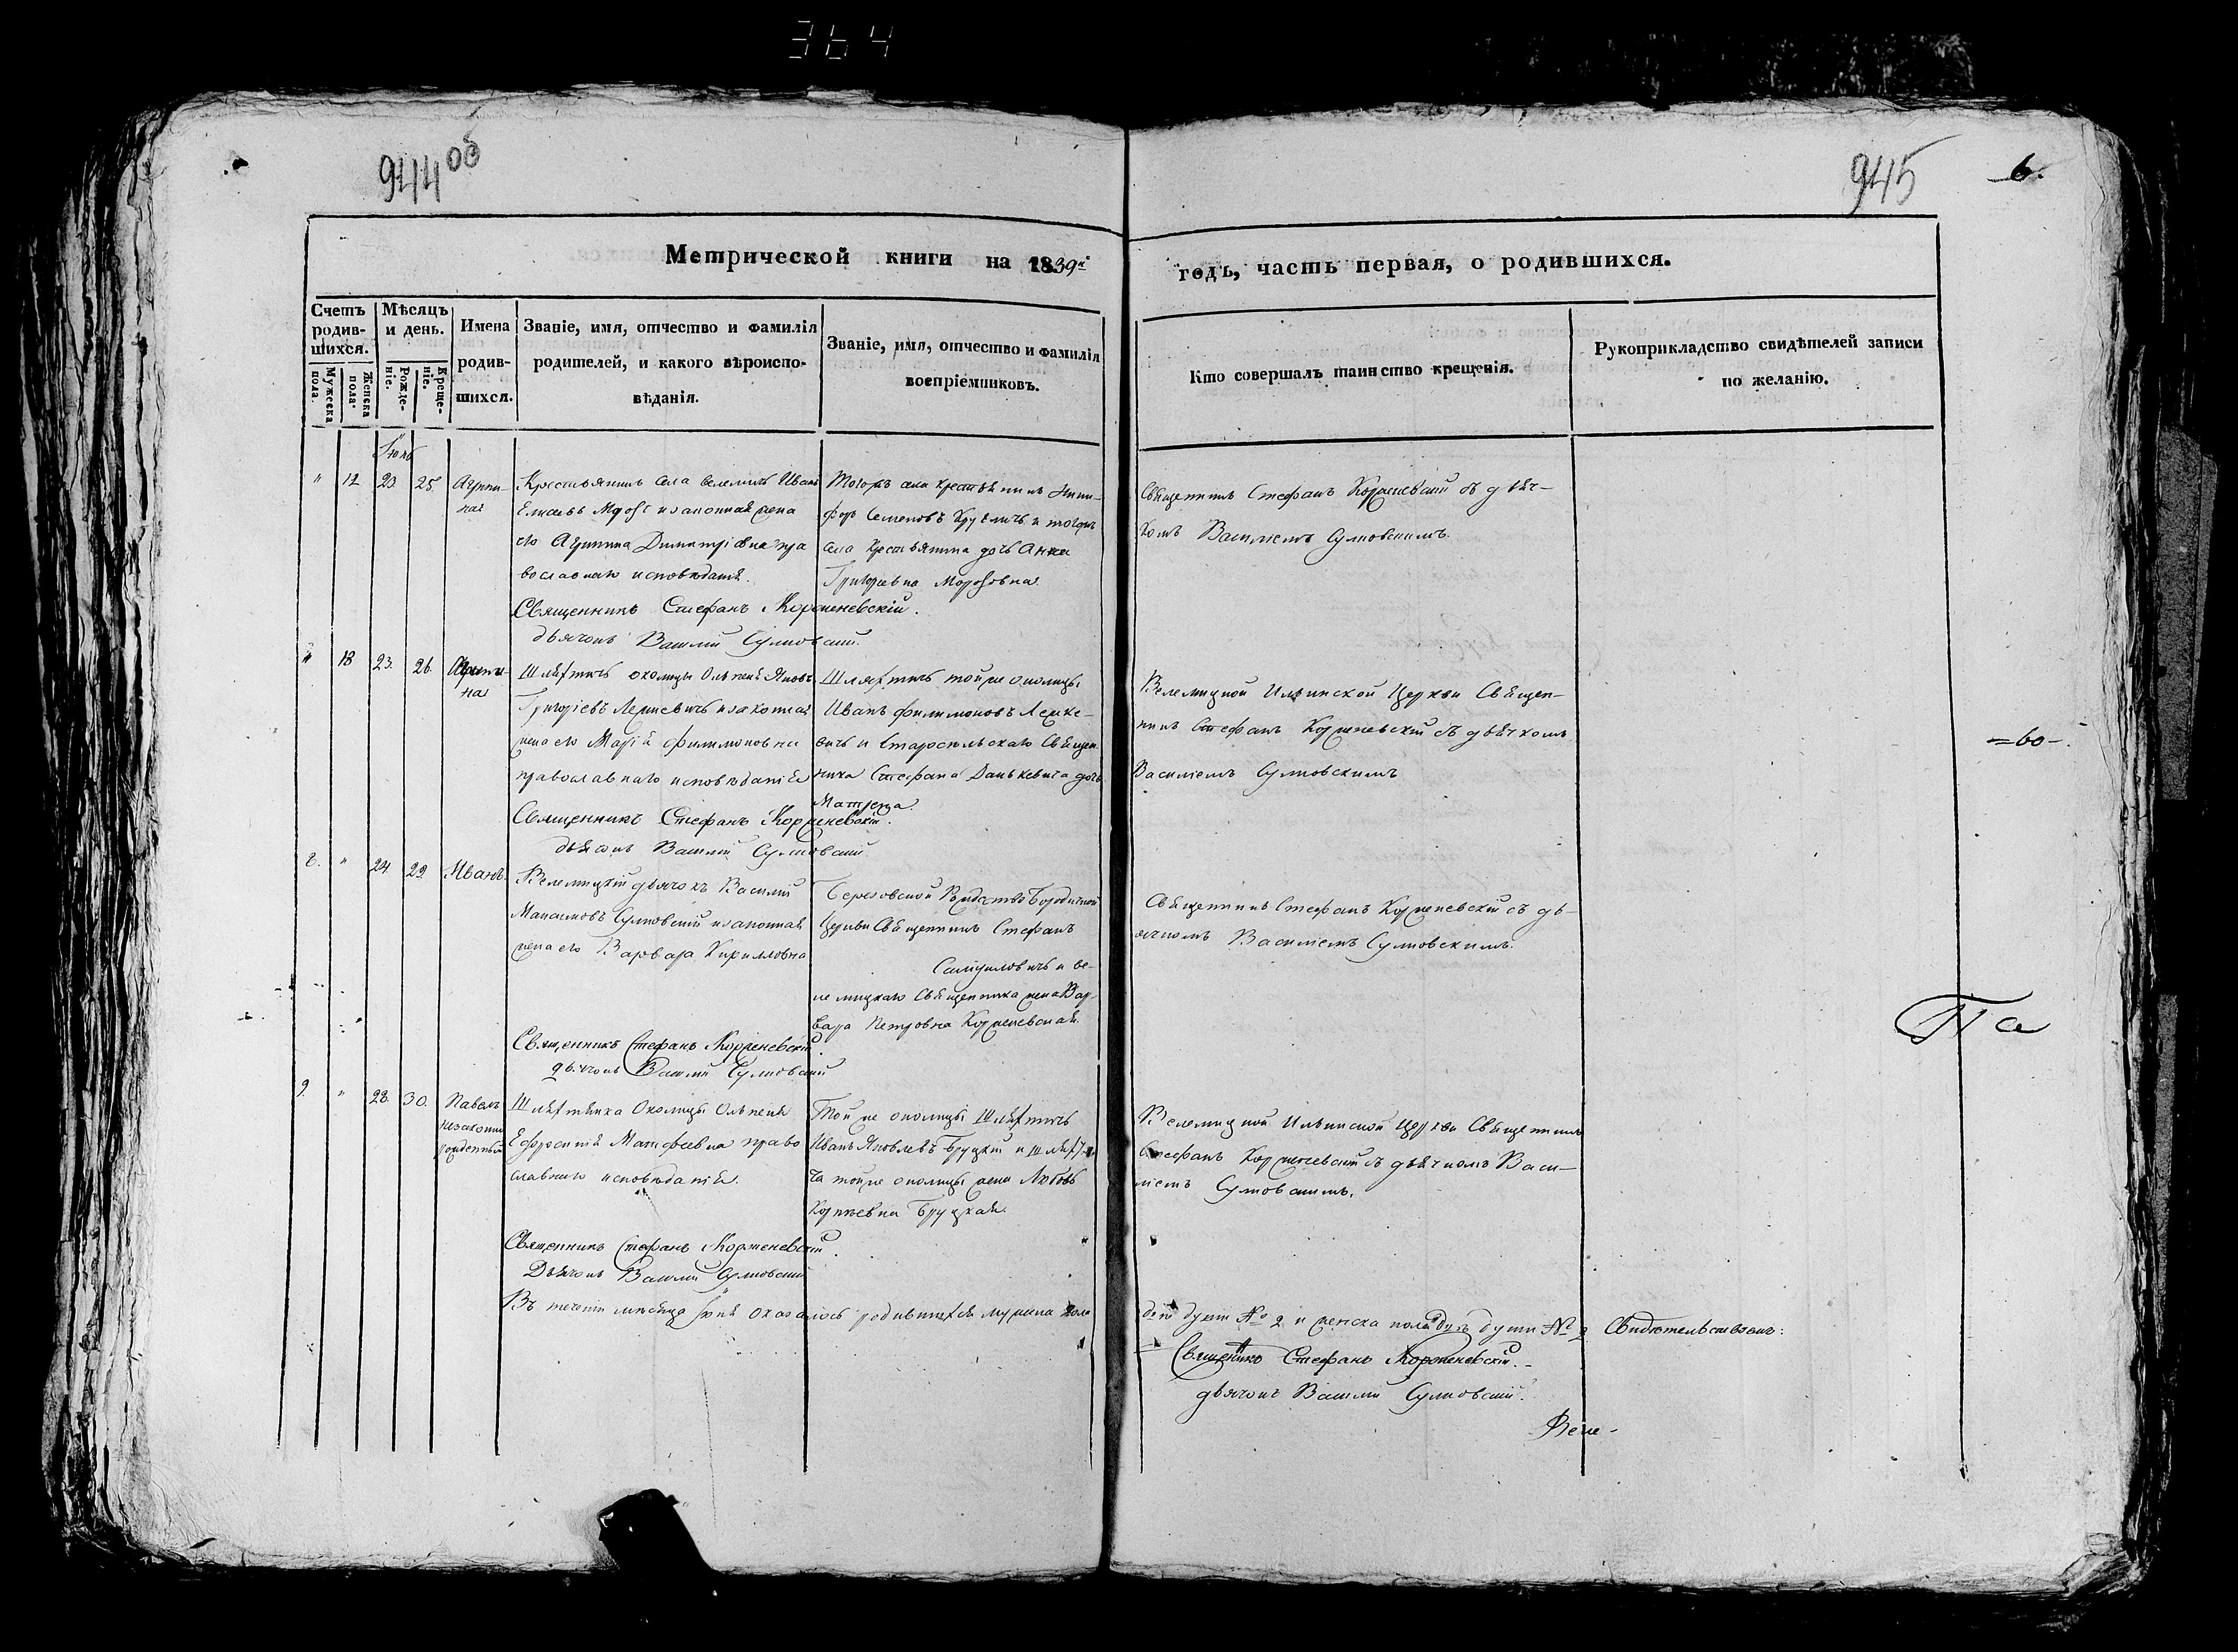 364
944 об
945
6.
Метрической книги на 1839й
годъ, часть первая, о родившихся.
Счетъ родив-шихся.
Мужеска пола.
Женска пола.
Мѣсяцъ и день.
Рожде-ніе.
Креще-ніе.
Имена
родив-
шихся.
Званіе, имя, отчество и фамилія
родителей, и какого вѣроиспо-
вѣданія.
Званіе, имя, отчество и фамилія
воспріемниковъ.
Кто совершалъ таинство крещенія.
Рукоприкладство свидѣтелей записи
по желанію.
Іюнь
" 12 23. 25. Агрипи-
на
Крестьянинъ села Велемичъ Иванъ
Елисеевъ и законная жена
его Агрипина Димитріевна пра
вославнаго исповѣданія.
Священникъ Стефанъ Корженевскій.
дьячокъ Василій Сулковскій.
Тогожъ села крестьянинъ Ники-
форъ Семеновъ и тогожъ
села крестьянина дочь Анна
Григорьевна Морозовна
Священникъ Стефанъ Корженевскій съ дьяч-
комъ Василіемъ Сулковскимъ.
" 13 23. 26. Агрипи-
на
Шляхтичъ околицы Ольпеня Яковъ
Григоріевъ и законная
жена его Марія Филимоновна
православнаго исповѣданія
Священникъ Стефанъ Корженевскій.
дьячокъ Василій Сулковскій
Шляхтичъ тойже околицы
Иванъ Филимоновъ
и Старосельскаго Священ
ника Стефана Данькевича дочь
Матрона.
Велемицкой Ильинской Церкви Священ-
никъ Стефанъ Корженевскій съ дьячкомъ
Василіемъ Сулковскимъ
=60-.
8. " 24. 29. Иванъ.
Велемицкій дьячокъ Василій
Максимовъ Сулковскій и законная
жена его Варвара Кирилловна
Священникъ Стефанъ Корженевскій.
дьячокъ Василій Сулковскій
Березовской Рождество Богородичной
Церкви Священникъ Стефанъ
Самуиловичъ и ве-
лемицкаго Священника жена Вар-
вара Петровна Корженевская.
Священникъ Стефанъ Корженевскій съ дь-
ячкомъ Василіемъ Сулковскимъ.
Па
9. " 28. 30. Павелъ
незаконно
рожденный
Шляхтянка Околицы Ольпеня
Ефросинія Матфеевна право
славнаго исповѣданія.
Священникъ Стефанъ Корженевскій.
Дьячокъ Василій Сулковскій
Тойже околицы Шляхтичъ
Иванъ Яковлевъ Бруцкій и Шляхти-
ча тойже околицы жена Любовь
Корнѣевна Бруцкая.
Велемицкой Ильинской Церкви Священникъ
Стефанъ Корженевскій съ дьячкомъ Васи-
ліемъ Сулковскимъ.
Въ теченіи мѣсяца Іюня оказалось родившихся мужеска пола
двѣ души № 2 и женска пола двѣ души № 2 Свидѣтельствуемъ:
Священникъ Стефанъ Корженевскій.-
дьячокъ Василій Сулковскій.
Веле-